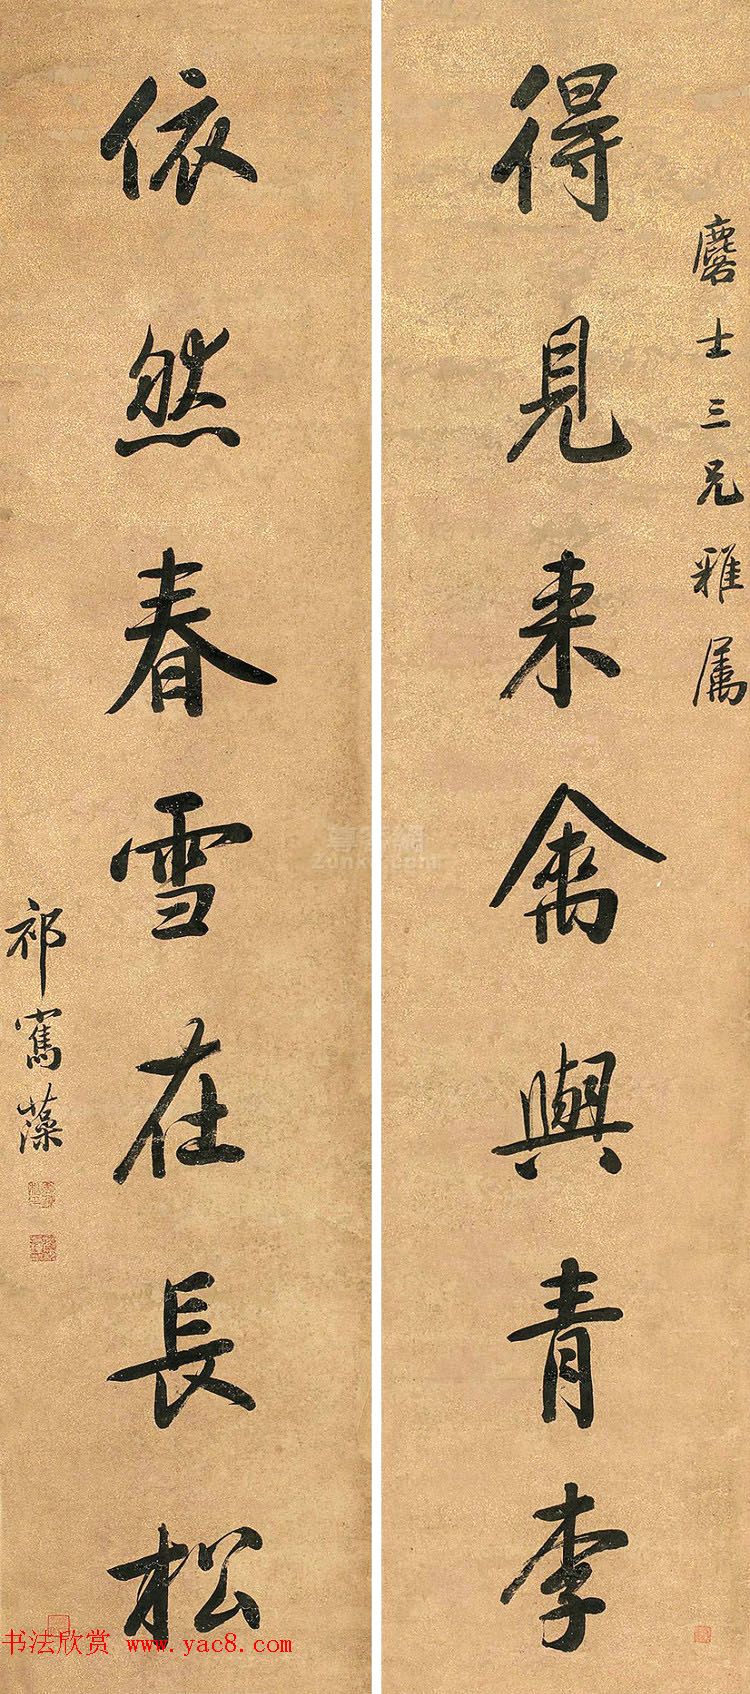 麐士三兄雅属
得見来禽與青李
依然春雪在長松
祁寯藻
书法欣赏 www.yac8.com